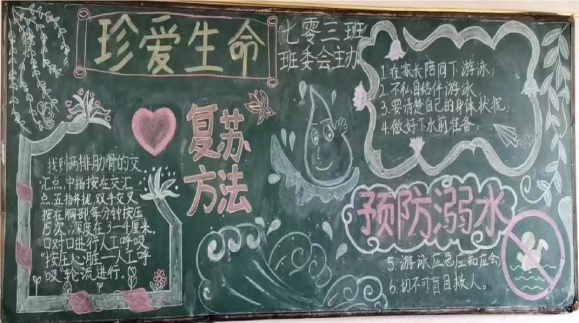 珍爱生命
七零三班
班委会主办
复苏
方法
找到两排肋骨的交
汇点,中指按在交汇
点,五指并拢,双手交叉
按在胸部每分钟按压
15次,深度在3-4厘米,
口对口进行人工呼吸
"按压心脏—人工呼
吸"轮流进行.
1.在家长陪同下游泳;
2.不私自结伴游泳
3.要清楚自己的身体状况,
4.做好下水前准备;
预防溺水
5.游泳应急应知应会
6.切不可盲目救人。